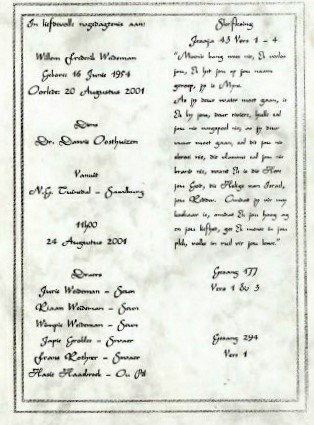 In liefdevolle nagedagtenis aan:
Willem Frederik Weideman
Gebore: 16 Junie 1954
Oorlede: 20 Augustus 2001
Diens
Dr. Dawis Oosthuizen
Vanuit
N.G. Tuinedal -
11h00
24 Augustus 2001
Draers
Jurie Weideman - Seun
Riaan Weideman - Seun
Weideman - Seun
Japie Grobler - Swaer
Frans Rothner - Swaer
Hasie Haasbroek - Ou Pil
Skriflesing
Jesaja 43 Vers 1 - 4
"Moenie bang wees nie, Ek verlos
jou, Ek het jou op jou naam
geroep, jy is Myne.
As jy deur water moet gaan, is
Ek by jou, deur riviere, hulle sal
jou nie wegspoel nie; as jy deur
vuur moet gaan, sal dit jou nie
skroei nie, die vlamme sal jou nie
brand nie, want Ek is die Here
jou God, die Heilige van Israel,
jou Redder. Omdat jy vir my
kosbaar is, omdat Ek jou hoog ag
en jou liefhet, gee Ek mense in jou
plek, volke in ruil vir jou lewe."
Gesang 177
Vers 1 en 3
Gesang 294
Vers 1